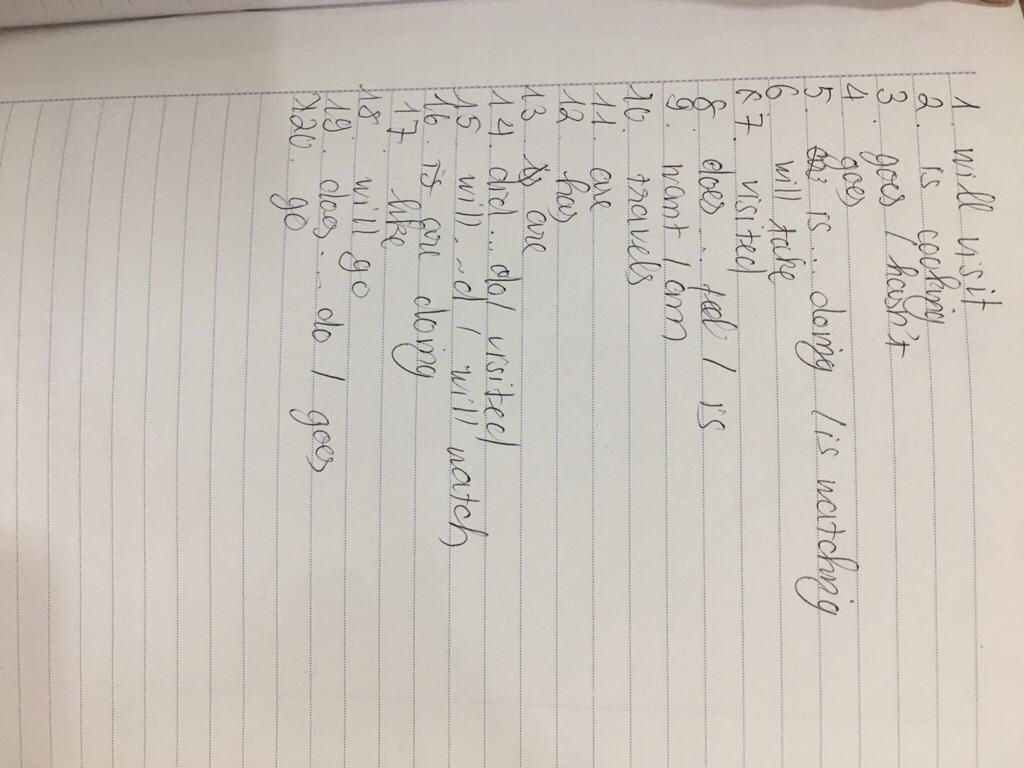 1. will visit
2. is cooking
3. goes / hasn't
4. goes
5. is... doing / is watching
6 will take
7. visited
8. does... feel / is
9. want / am
10. travels
11. are
12. has
13 are
14. did... do / visited
15. will... d / will watch
16. is are doing
17. like
18. will go
19. does... do / goes
20. go